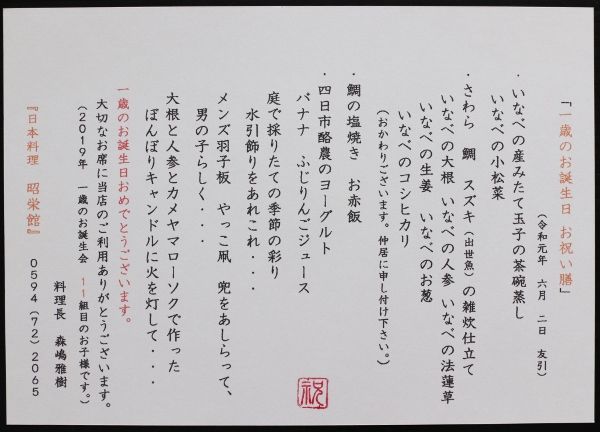 『一歳のお誕生日 お祝い膳』
（令和元年 六月 二日 友引）
・いなべの産みたて玉子の茶碗蒸し
いなべの小松菜
・さわら 鯛 スズキ（出世魚）の雑炊仕立て
いなべの大根 いなべの人参 いなべの法蓮草
いなべの生姜 いなべのお葱
いなべのコシヒカリ
（おかわりございます。仲居に申し付け下さい。）
・鯛の塩焼き お赤飯
・四日市酪農のヨーグルト
バナナ ふじりんごジュース
庭で採りたての季節の彩り
水引飾りをあれこれ・・・
メンズ羽子板 やっこ凧 兜をあしらって、
男の子らしく・・・
大根と人参とカメヤマローソクで作った
ぼんぼりキャンドルに火を灯して・・・
一歳のお誕生日おめでとうございます。
大切なお席に当店のご利用ありがとうございます。
（２０１９年 一歳のお誕生会 １１組目のお子様です。）
料理長 森嶋雅樹
『日本料理 昭栄館』 ０５９４（７２）２０６５
祝